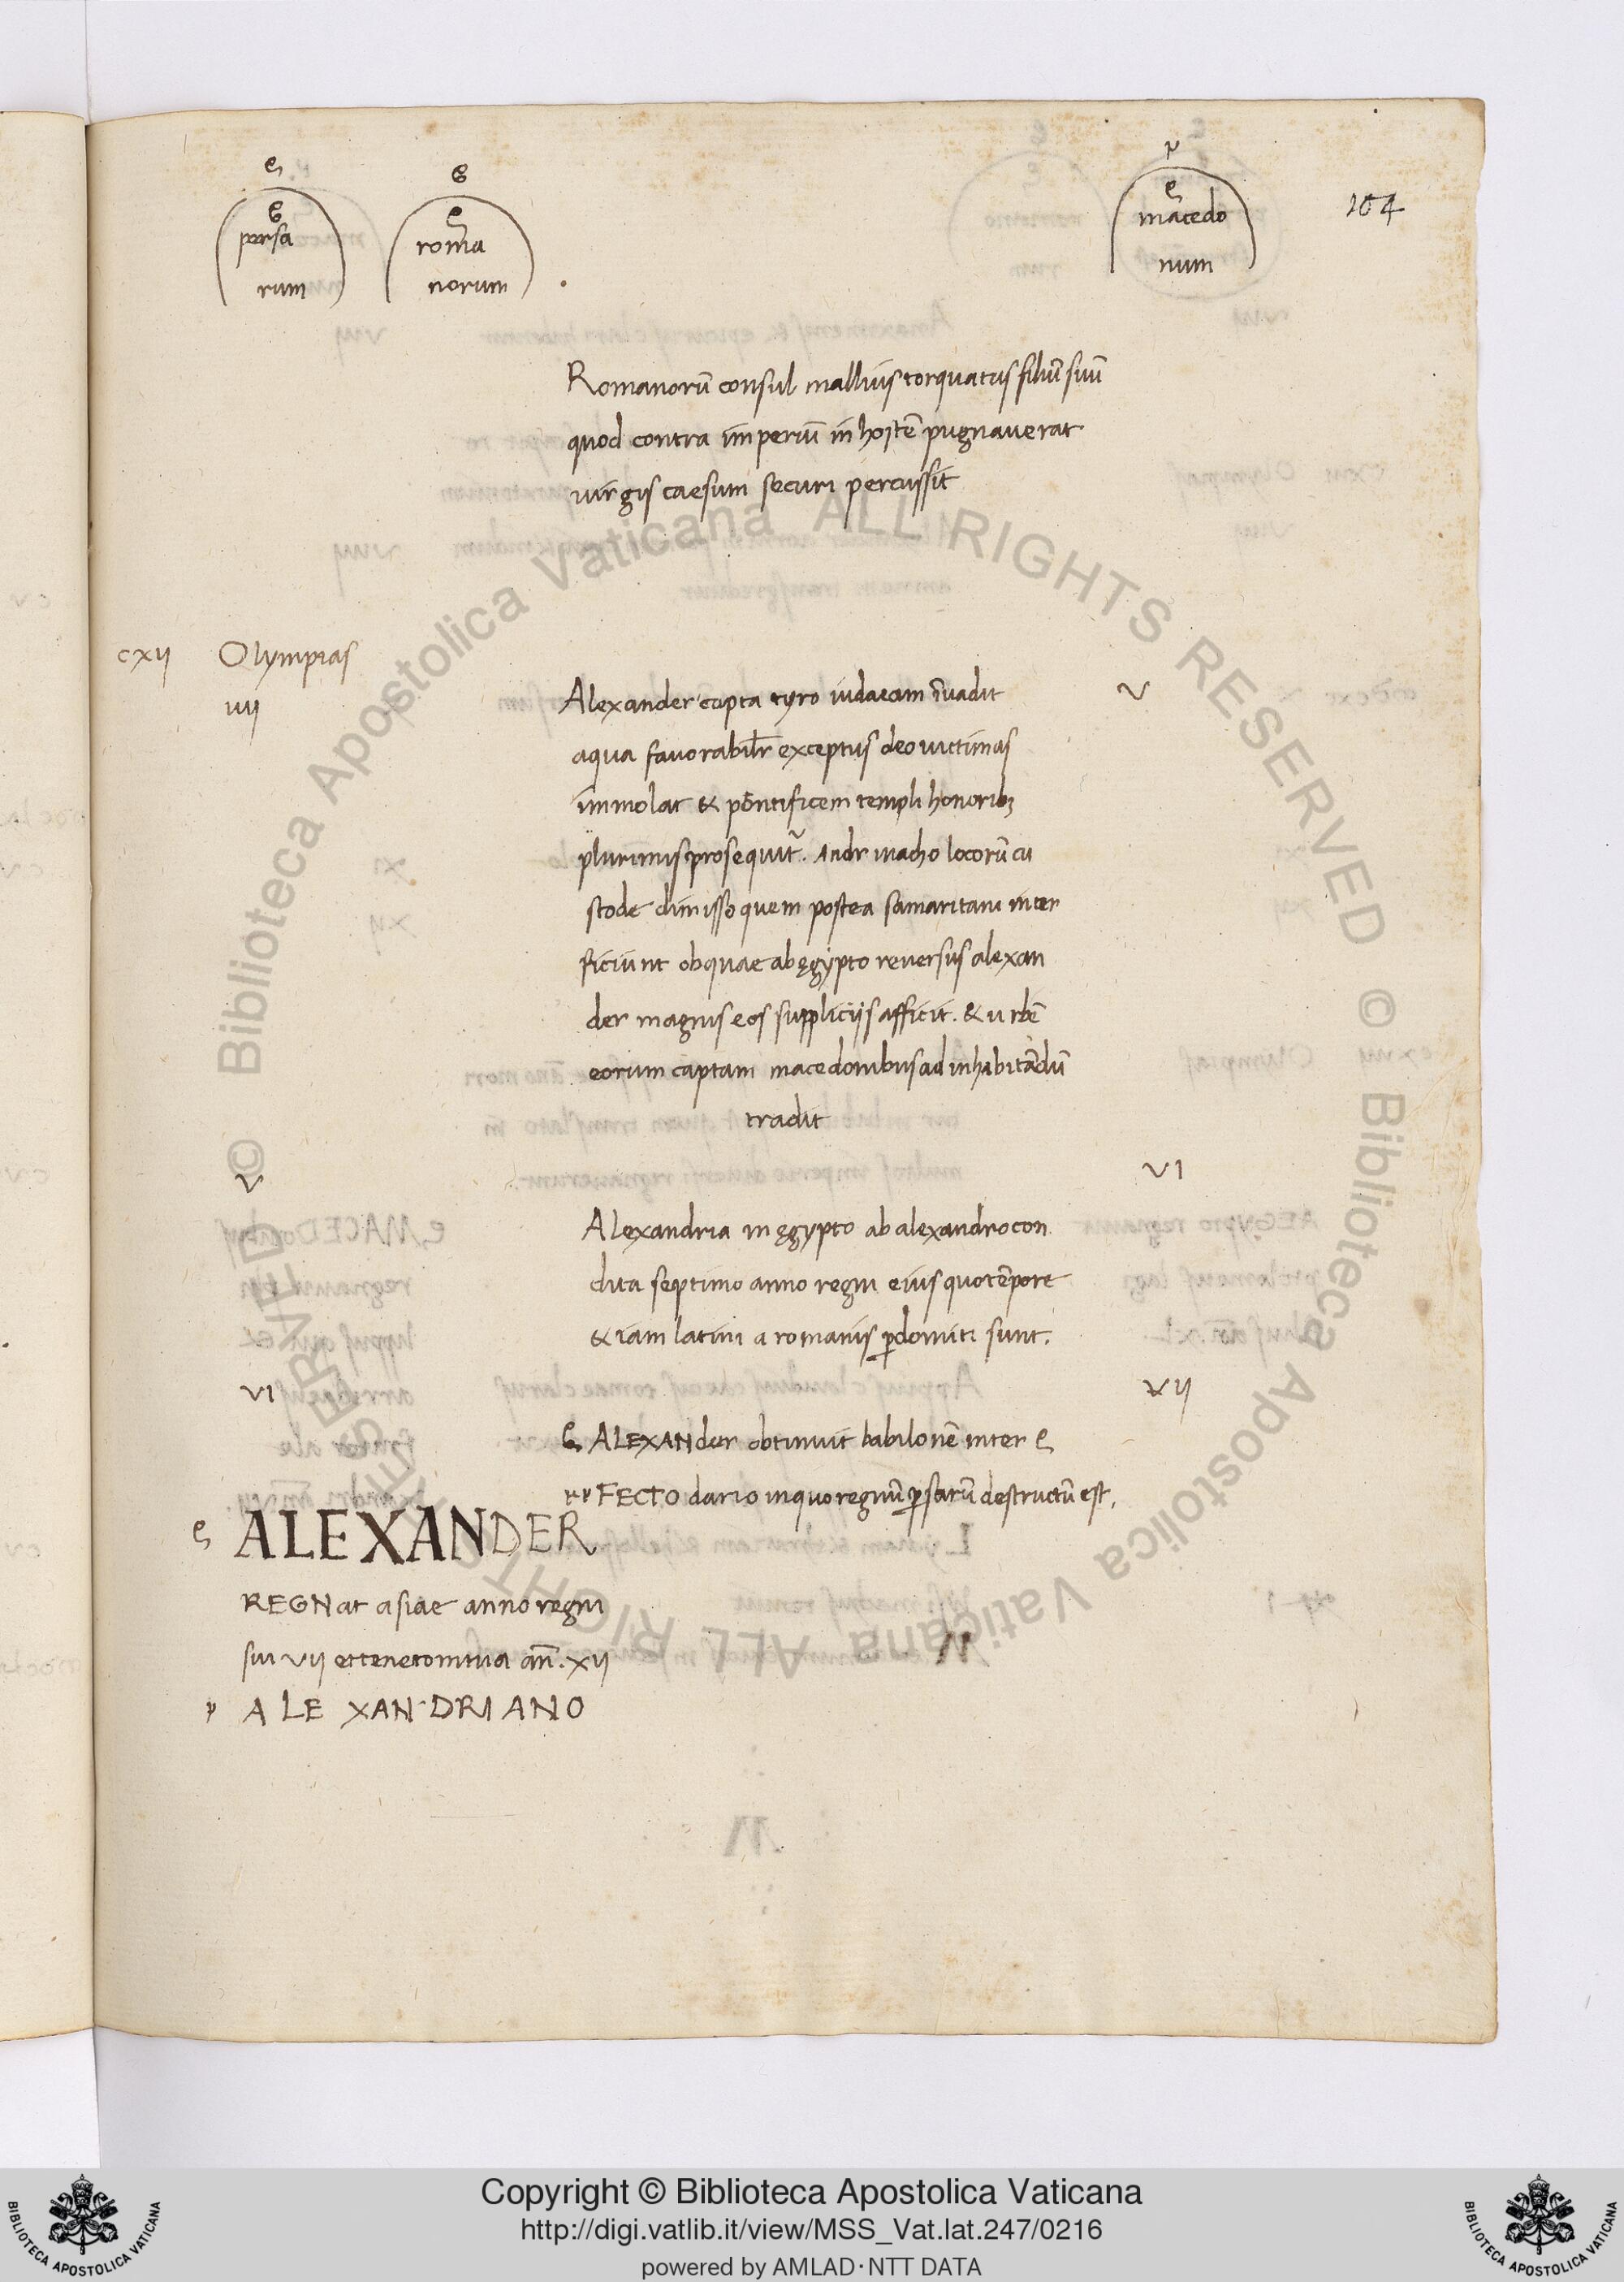 104
persa
rum
roma
norum
macedo
num
Romanorũ consul mallius torquatus filiũ suũ
quod contra imperiũ in hostẽ pugnauerat
uirgis caesum securi percussit
cxii Olympias
iiii
Alexander capta tyro iudaeam ĩuadit V
aqua fauorabilr̃ exceptus deo uictimas
immolat & põntificem templi honorib;
plurimis prosequit̃. Andrmacho locorũ cu
stode dimisso quem postea samaritani inter
ficiunt ob quae ab ęgypto reuersus alexan
der magnis eos suppliciis afficit. & urbẽ
eorum captam macedonibus ad inhabitãdũ
tradit
V VI
Alexandria in ęgypto ab alexandro con
dita septimo anno regni eius quo tẽpore
& iam latini a romanis ꝑdomiti sunt.
VI VII
ALEXANder obtinuit babilonẽ inter
FECTO dario in quo regnũ ꝑsarũ destructũ est.
ALEXANDER
REGNat asiae anno regni
sui VII et tenet omnia añ. XII
ALEXANDRIANO
© Biblioteca Apostolica Vaticana ALL RIGHTS RESERVED © Biblioteca Apostolica Vaticana ALL RIGHTS RESERVED
Copyright © Biblioteca Apostolica Vaticana
http://digi.vatlib.it/view/MSS_Vat.lat.247/0216
powered by AMLAD·NTT DATA
BIBLIOTECA APOSTOLICA VATICANA
BIBLIOTECA APOSTOLICA VATICANA